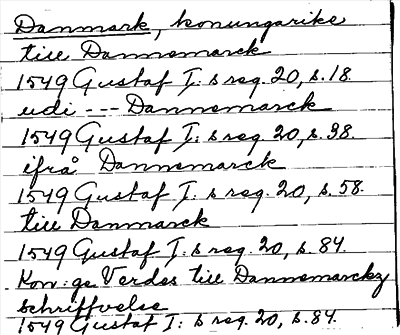 Danmark, konungarike
till Dannemarck
1549 Gustaf I: s reg. 20, s. 18.
udi --- Dannemarck
1549 Gustaf I: s reg. 20, s. 38.
ifrå Dannemarck
1549 Gustaf I: s reg. 20, s. 58.
till Danmarck
1549 Gustaf I: s reg. 20, s. 84.
Kon: ge Verdes till Dannemarckz
schriffvelse
1549 Gustaf I: s reg. 20, s. 84.